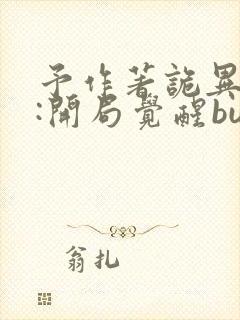 予作著詭異
:開局覺醒bu
翁扎